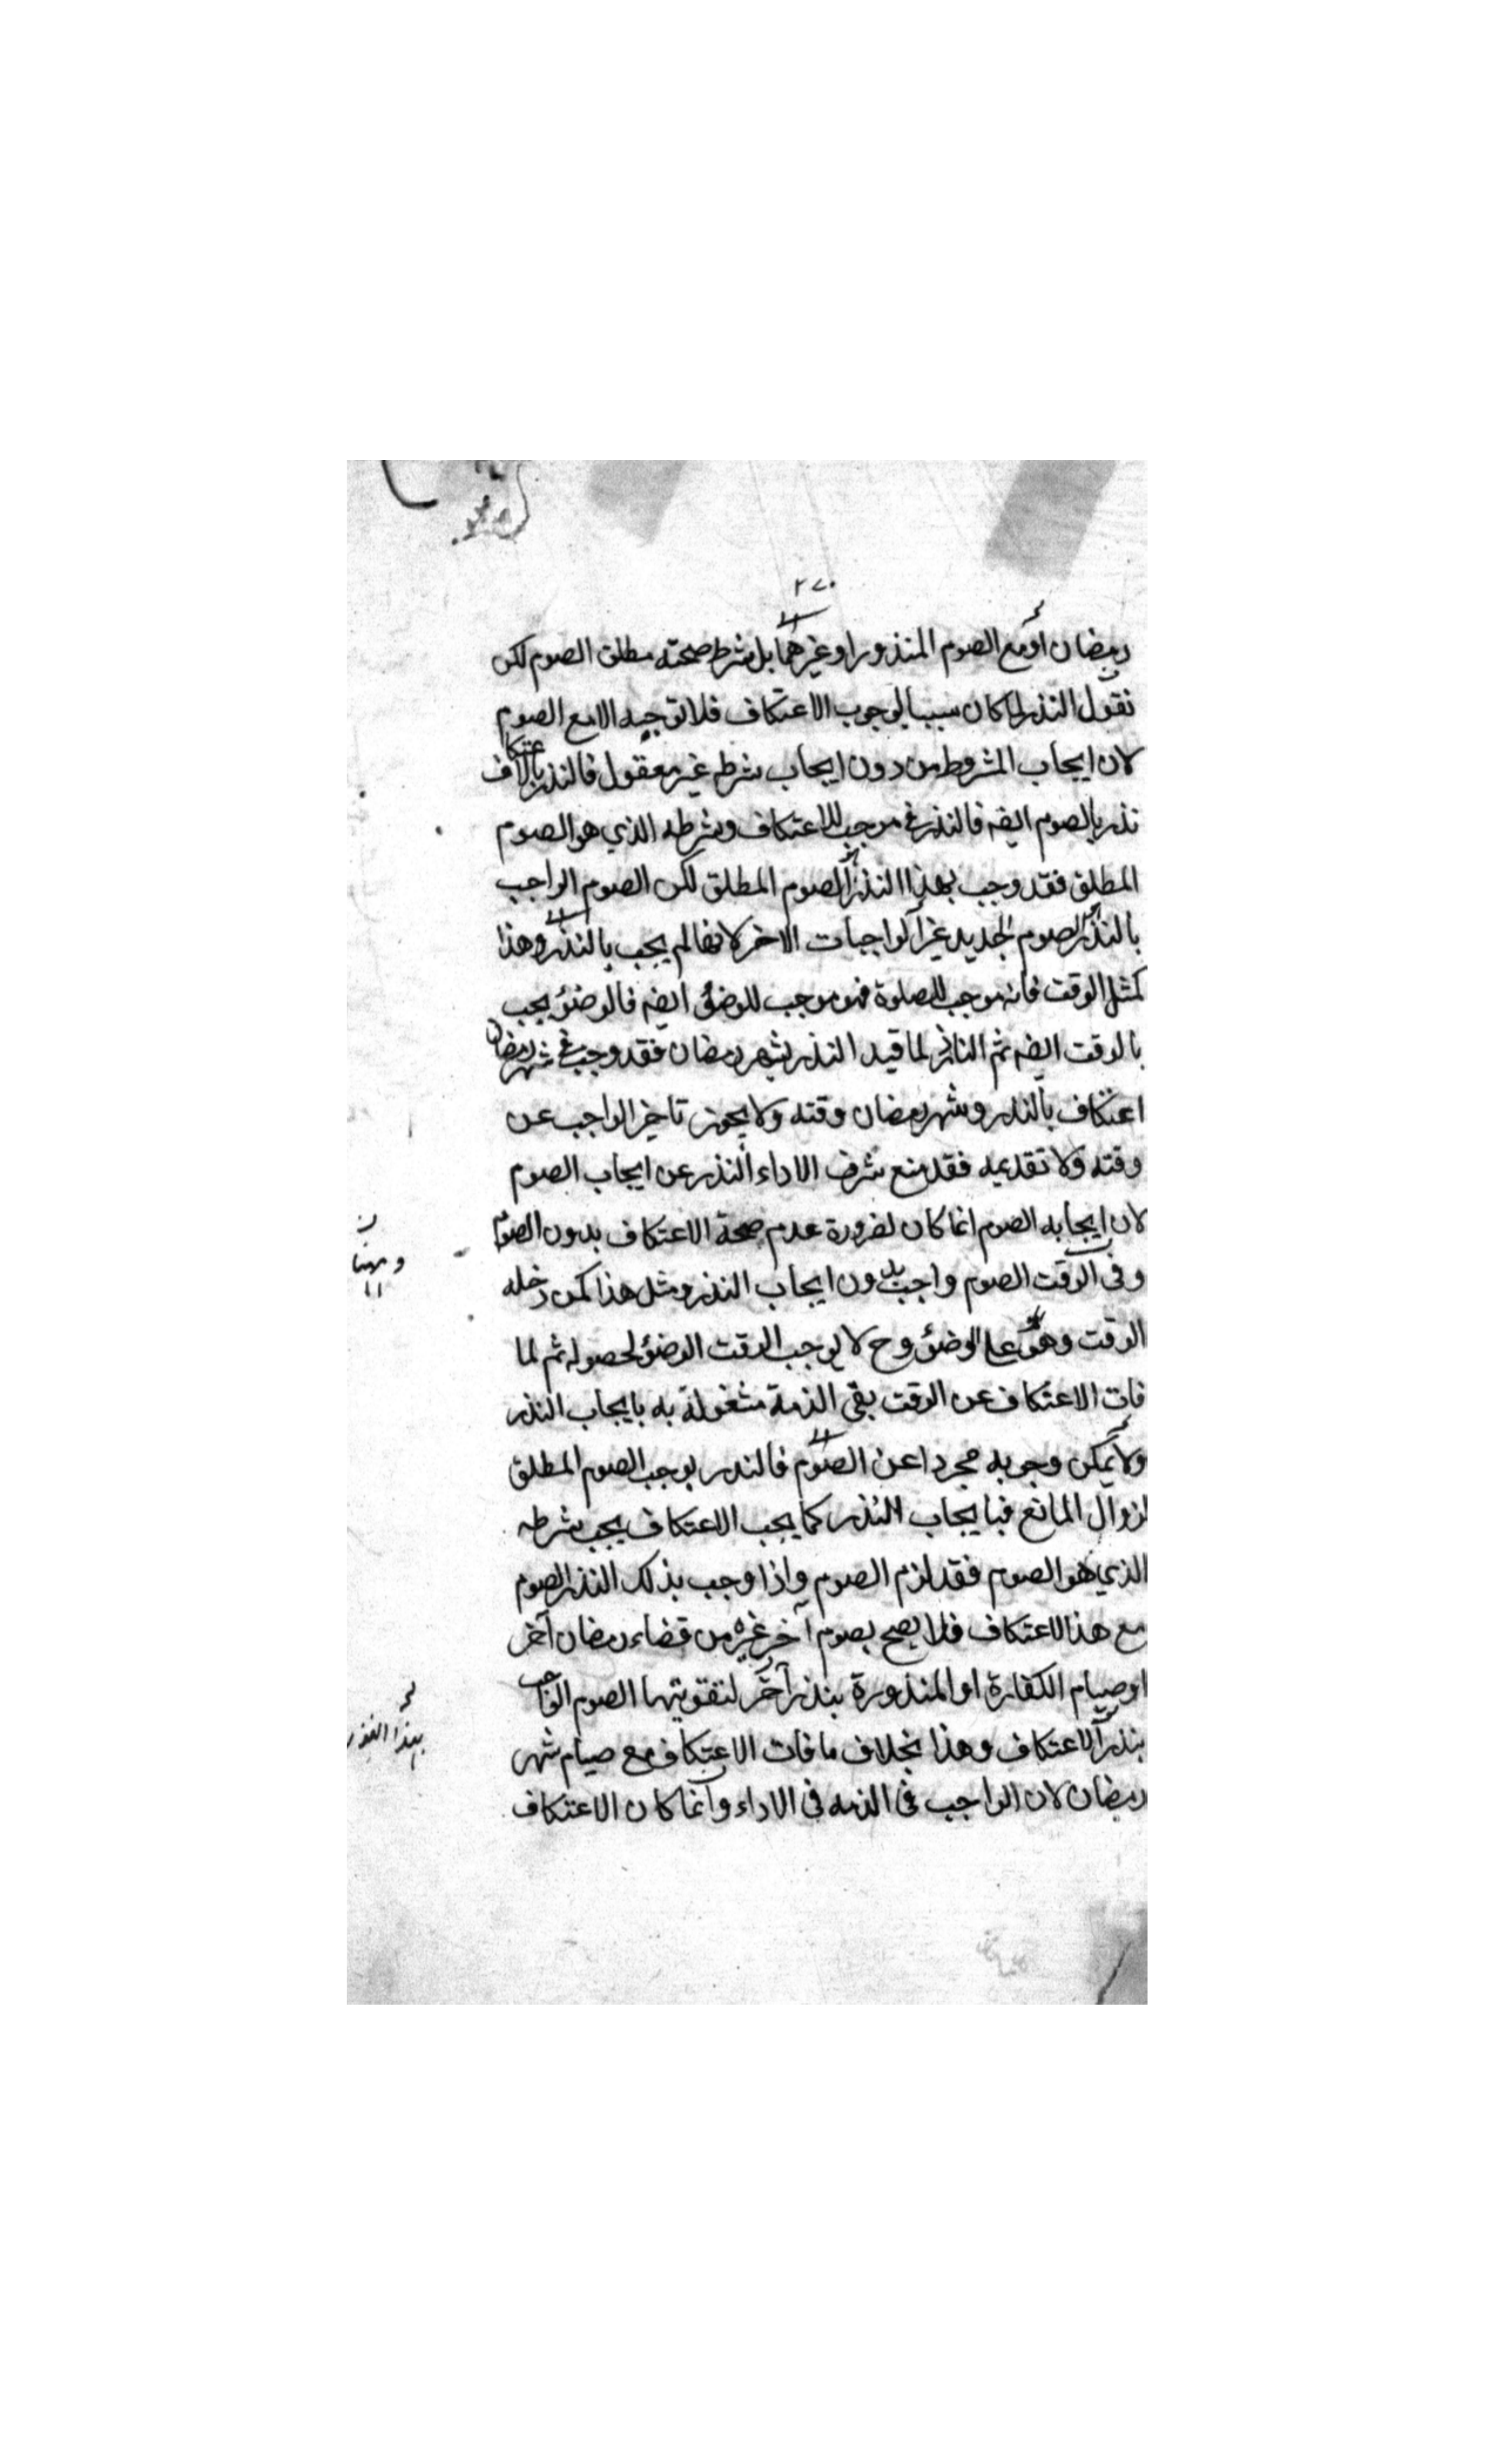 ٢٧٠
رمضان او مع الصوم المنذور او غيرهما بل شرط صحته مطلق الصوم لكن
نقول النذر لما كان سببا لوجوب الاعتكاف فلا توجبه الا مع الصوم
لان ايجاب المشروط من دون ايجاب شرطه غير معقول فالنذر بالاعتكاف
نذر بالصوم ايضه فالنذر موجب للاعتكاف وشرطه الذي هو الصوم
المطلق فقد وجب بهذا النذر الصوم المطلق لكن الصوم الواجب
بالنذر الصوم الجديد غير الواجبات الاخر لانها لم يجب بالنذر وهذا
كمثل الوقت فانه موجب للصلوة فهو موجب للوضؤ ايضه فالوضؤ يجب
بالوقت ايضه ثم الناذر لما قيد النذر بشهر رمضان فقد وجب في شهر رمضان
اعتكاف بالنذر وشهر رمضان وقته ولا يجوز تاخير الواجب عن
وقته ولا تقديمه فقد منع شرف الاداء النذر عن ايجاب الصوم
لان ايجابه الصوم انما كان لضرورة عدم صحة الاعتكاف بدون الصوم
وفي الوقت الصوم واجب بدون ايجاب النذر ومثل هذا كمن دخله
الوقت وهو على الوضؤ وح لا يوجب الوقت الوضؤ لحصوله ثم لما
فات الاعتكاف عن الوقت بقى الذمة مشغولة به بايجاب النذر
ولا يمكن وجوبه مجردا عن الصوم فالنذر يوجب الصوم المطلق
لزوال المانع فبايجاب النذر كما يجب الاعتكاف يجب شرطه
الذي هو الصوم فقد لزم الصوم واذا وجب بذلك النذر الصوم
مع هذا الاعتكاف فلا يصح بصوم آخر غيره من قضاء رمضان آخر
او صيام الكفارة او المنذورة بنذر آخر لتفويتها الصوم الواجب
بنذر الاعتكاف وهذا بخلاف ما فات الاعتكاف مع صيام شهر
رمضان لان الواجب في الذمه في الاداء وانما كان الاعتكاف
وههنا
بهذا النذر